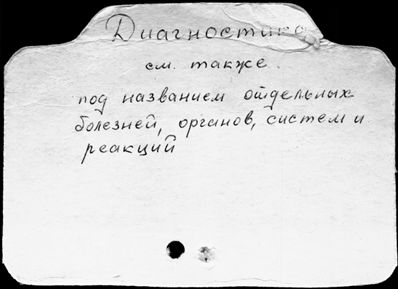 Диагностика
см. также.
под названием отдельных
болезней, органов, систем и
реакций